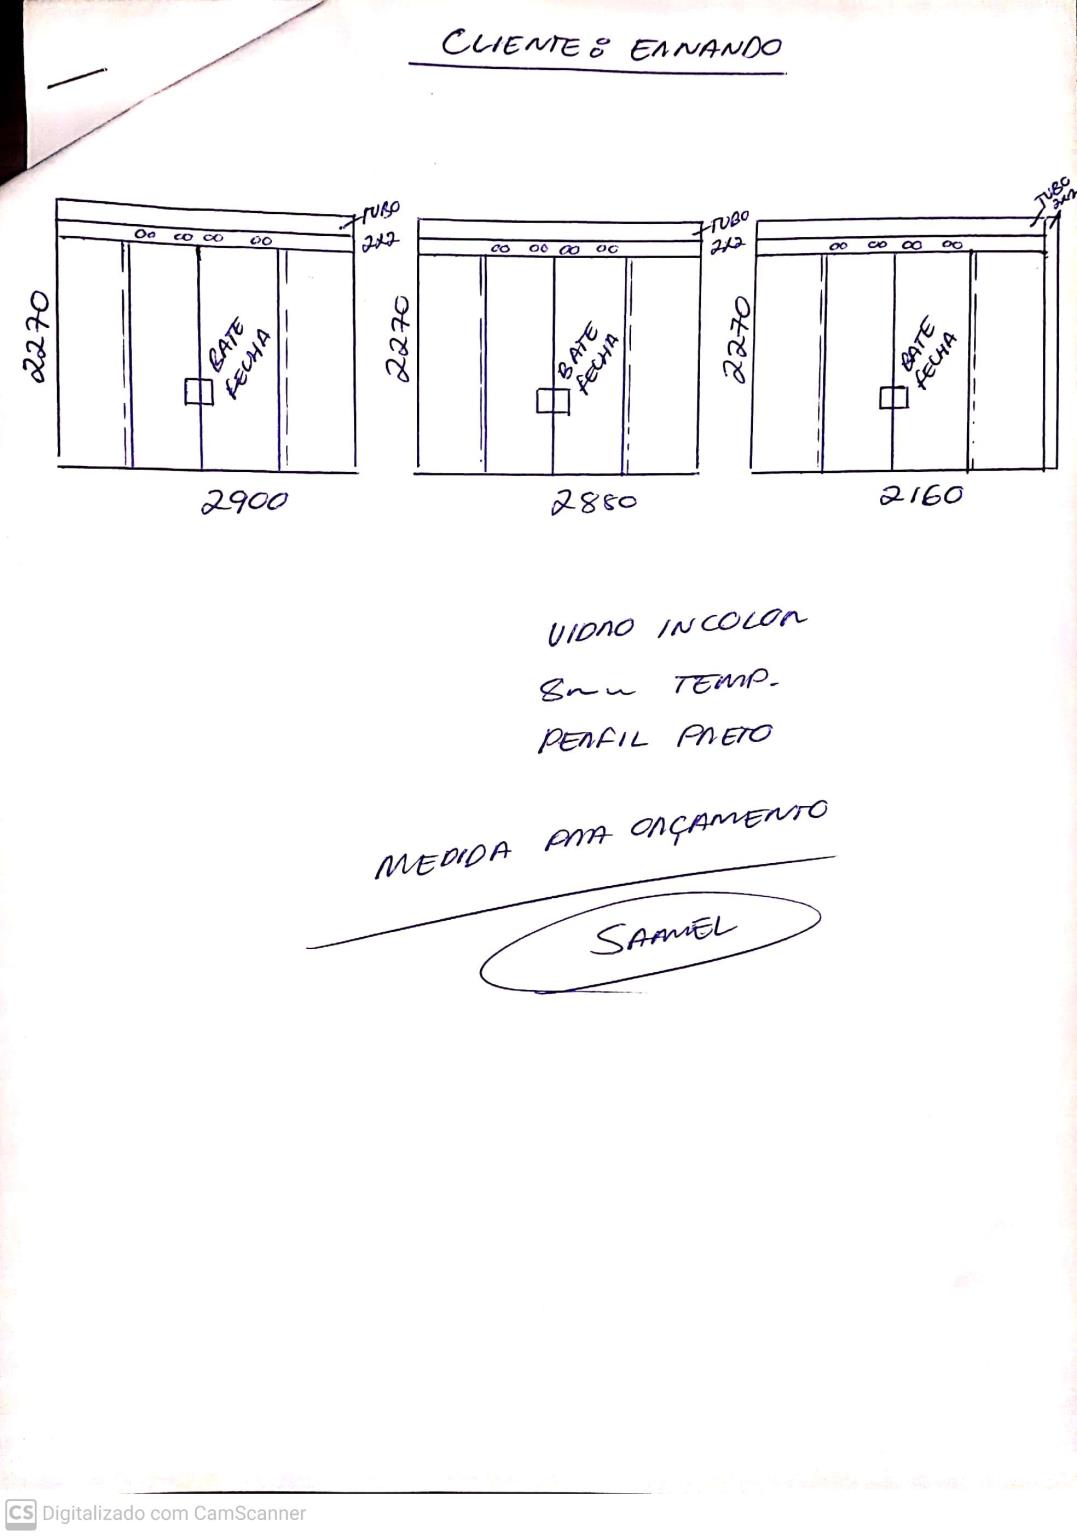 CLIENTE: ERNANDO
TUBO
2x2
2270
BATE
FECHA
2900
TUBO
2x2
2270
BATE
FECHA
2880
TUBO
2x2
2270
BATE
FECHA
2160
VIDRO INCOLOR
8mm TEMP.
PERFIL PRETO
MEDIDA PRA ORÇAMENTO
SAMUEL
CS Digitalizado com CamScanner